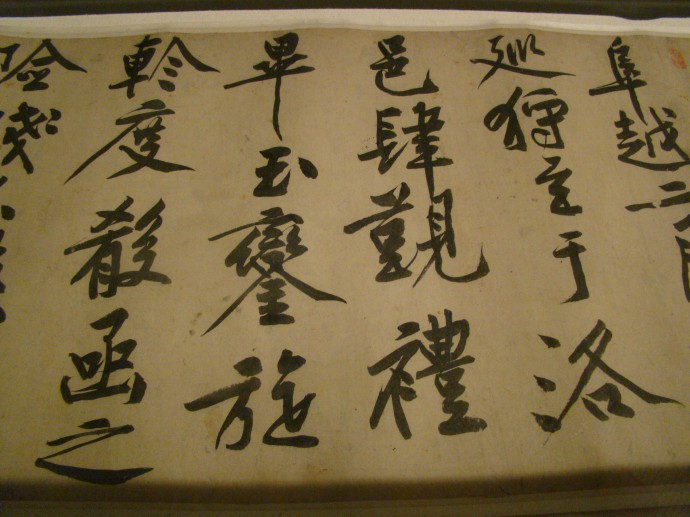 阜越二月
巡狩至于洛
邑肆覲禮
畢玉鑾旋
軫度殽函之
險踐